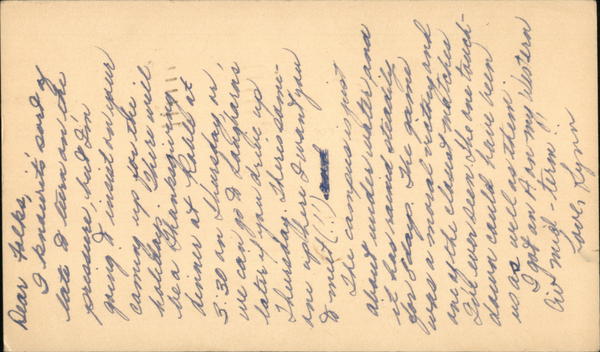 Dear Folks,
I know it's sort of
late to turn on the
pressure, but I'm
going to insist on your
coming up for the
holiday. There will
be a Thanksgiving
dinner at at
3:30 on Thursday, or
we can go to
later if you drive up
Thursday. There's some-
one up here I want you
to meet (!!)
The campus is just
about under water and
it has rained steadily
for days. The game
was a moral victory and
one of the closest matches
I've ever seen. The one touch-
down could have been
us as well as them.
I got an A on my Western
Civ mid-term!!
Love, Lynn